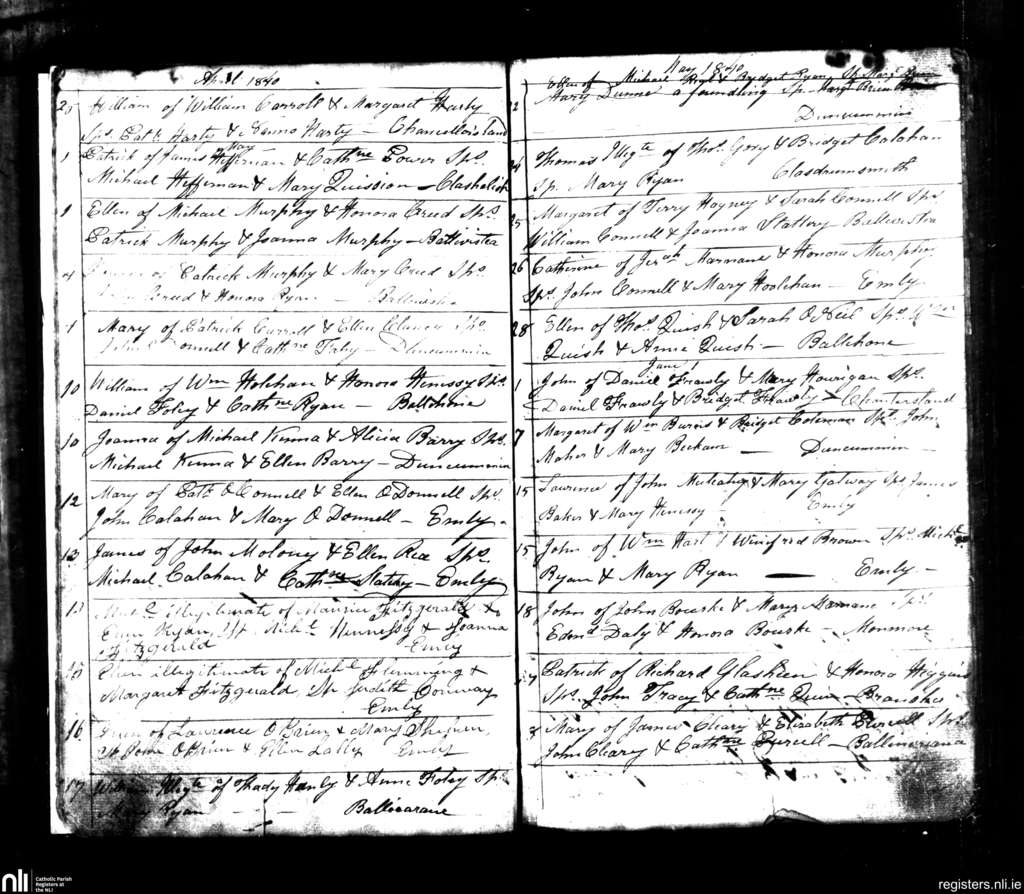 April 1840
William of William Carroll & Margaret Harty
Sps. Patk Harty & Harty — Chancellorsland
May
1 Patrick of James Heffernan & Cathne Power Sps.
Michael Heffernan & Mary Quission —
1 Ellen of Michael Murphy & Honora Creed Sps.
Patrick Murphy & Joanna Murphy — Ballivistea
4 of Patrick Murphy & Mary Creed Sps.
Creed & Honora Ryan —
1 Mary of Patrick Carroll & Ellen Clancy Sps.
John & Cathne Foley — Duncummin
10 William of Wm Holohan & Honora Henissy Sps
Daniel Foley & Cathne Ryan — Ballihone
10 Joanna of Michael Kinna & Alicia Barry Sps.
Michael Kinna & Ellen Barry — Duncummin
12 Mary of Patk O Connell & Ellen O Donnell Sps.
John Calahan & Mary O Donnell — Emly —
13 James of John Moloney & Ellen Rea Sps.
Michael Calahan & Cathne Slattery — Emly
13 Michl illegitimate of Maurice Fitzgerald &
Ellen Ryan, Sps. Michl Hennessy & Joanna
Fitzgerald Emly
Ellen illegitimate of Michl Flemming &
Margaret Fitzgerald, Sp Judith Conway
Emly
16 of Laurence O Brien & Mary
Sp John O Brien & Ellen Lally Emly
17 William Illegte of Thady Hanly & Anne Foley Sp.
Mary Ryan — — Ballicarane
May 1840
Ellen of Michael & Bridget Ryan, Sp Margt
Mary Dunne a foundling Sp. Margt Brien
Duncummin
24 Thomas Illegte of Thos. Gory & Bridget Calahan
Sp. Mary Ryan Glasdrumsmith
25 Margaret of Terry Hayney & Sarah Connell Sps.
William Connell & Joanna Slattery Ballivistia
26 Catherine of Jerah Marnane & Honora Murphy
Sps. John Connell & Mary Hoolehan — Emly
28 Ellen of Thos. Quish & Sarah O Neil Sps.
Quish & Annie Quish — Ballihone
June
1 John of Daniel Frawly & Mary Hourigan Sps.
Daniel Frawly & Bridget Frawly —
7 Margaret of Wm Burns & Bridget Coleman Sps. John
Maher & Mary Beckam — Duncummin —
15 Laurence of John Mulcahy & Mary Galway Sps James
Baker & Mary Henissy — Emly
15 John of Wm Hart & Winifred Brown Sps. Michl
Ryan & Mary Ryan — Emly —
18 John of John Bourke & Mary Marnane Sps.
Edmd Daly & Honora Bourke — Monmore
27 Patrick of Richard Glasheen & Honora Higgins
Sps. John Tracy & Cathne Quin —
Mary of James Cleary & Elizabeth Purcell Sps.
John Cleary & Cathne Purcell —
nli
Catholic Parish
Registers at
the NLI
registers.nli.ie